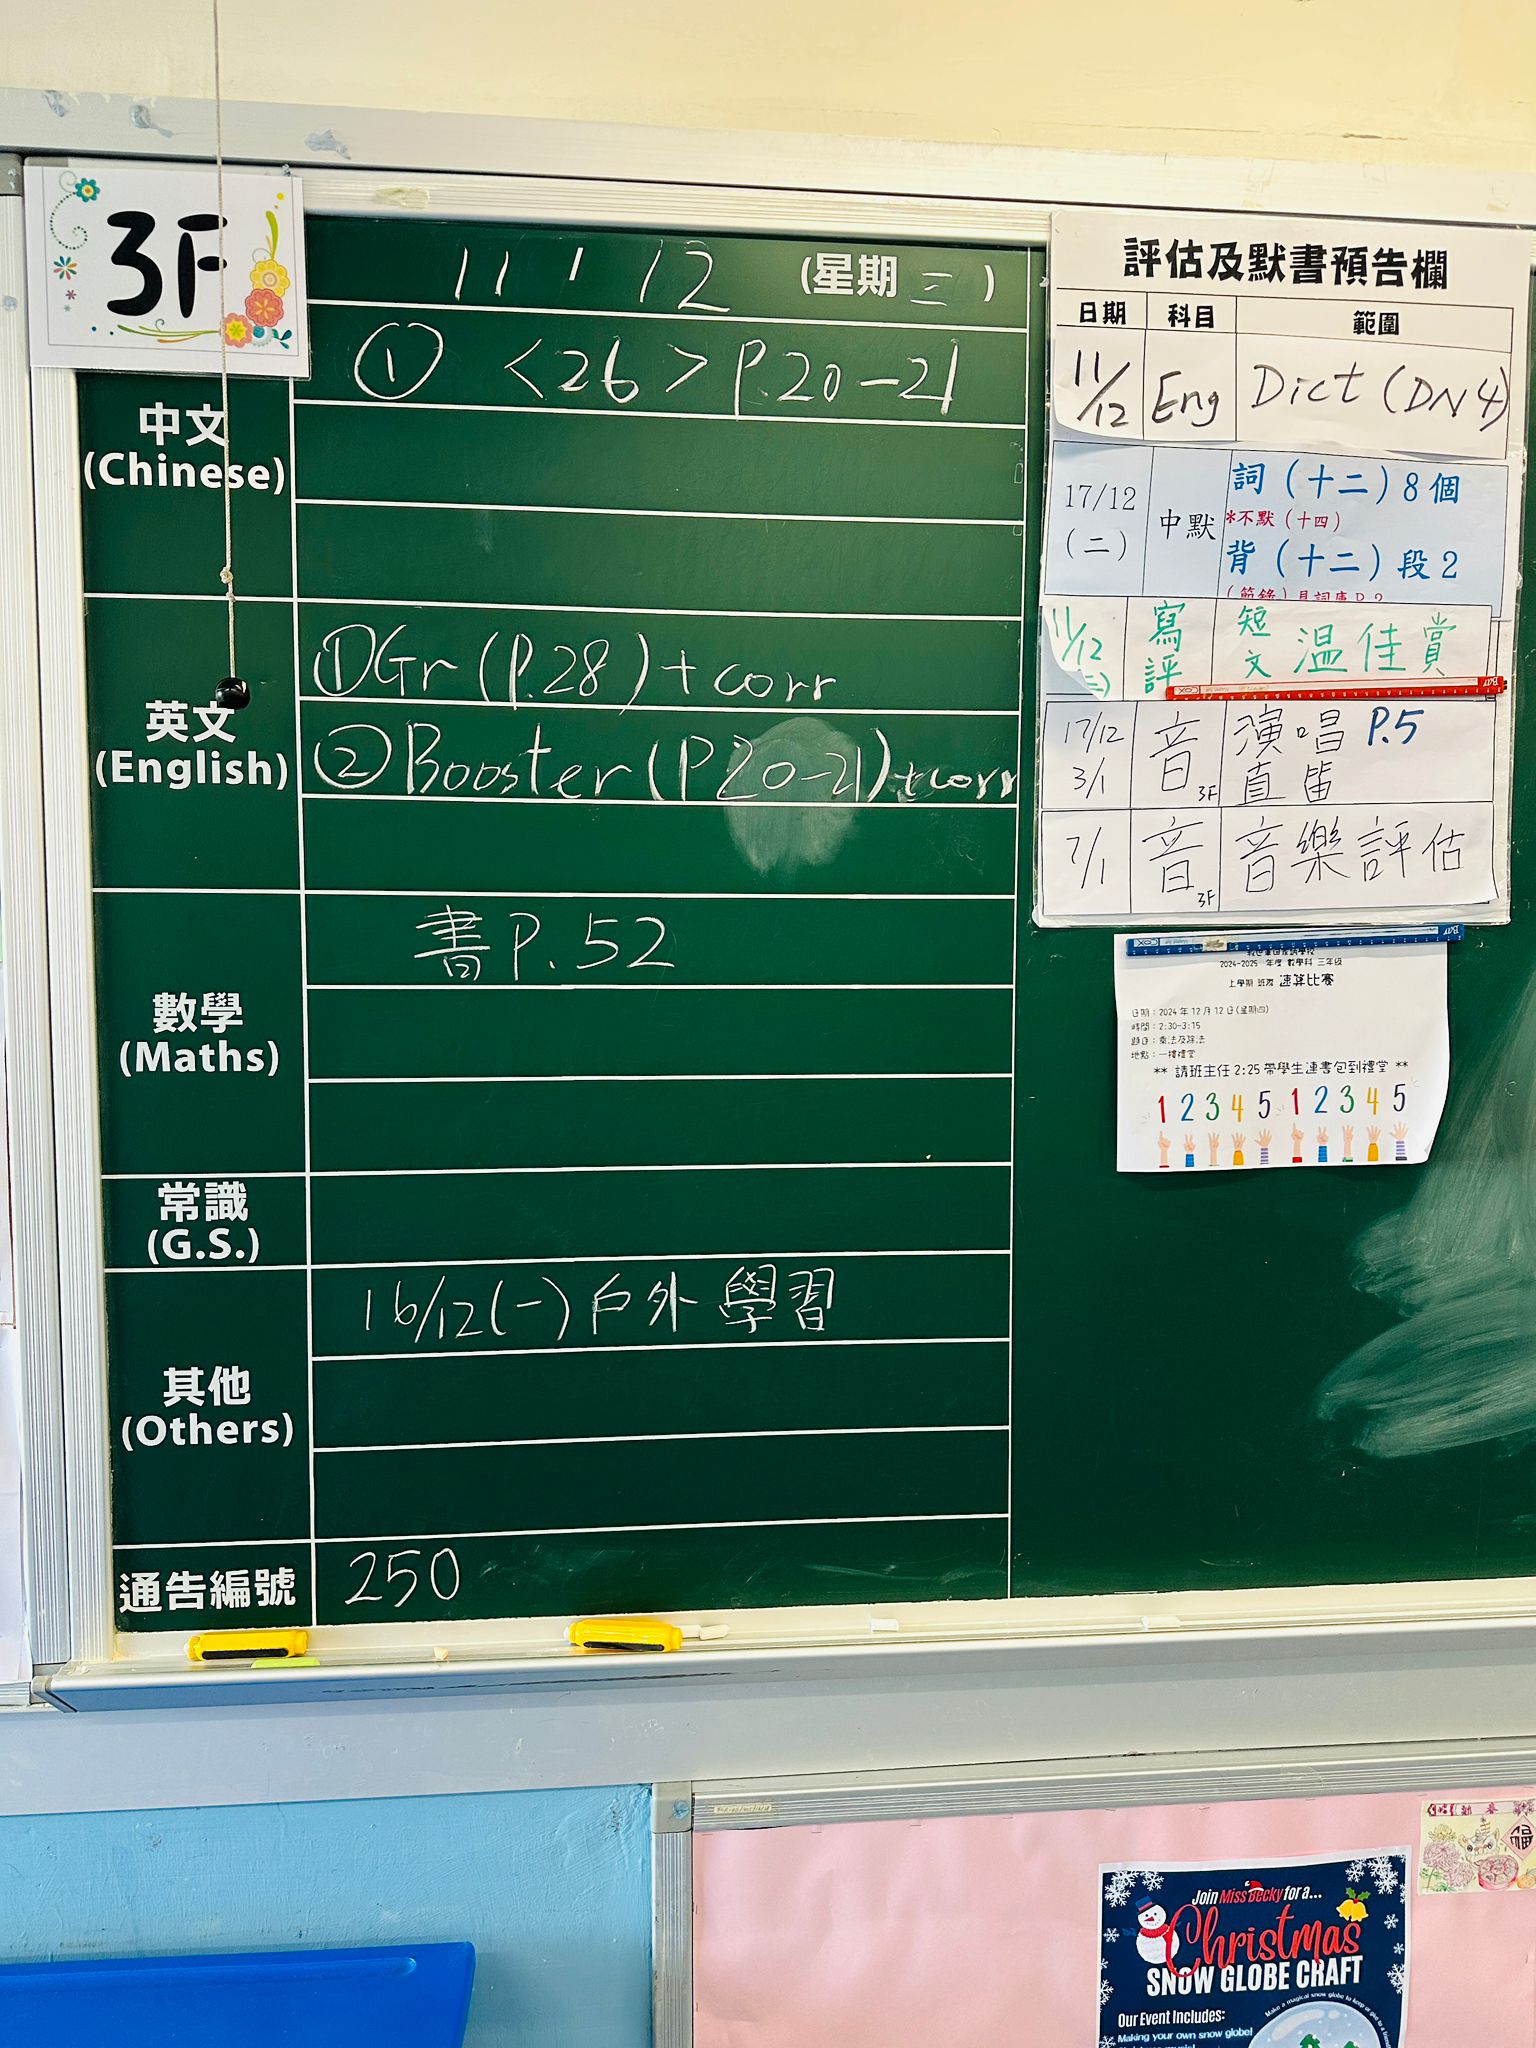 3F
11 / 12 (星期三)
中文
(Chinese)
① <26> P.20-21
英文
(English)
① Gr (P.28) + corr
② Booster (P 20-21) + corr
數學
(Maths)
書 P.52
常識
(G.S.)
其他
(Others)
16/12 (一) 戶外學習
通告編號
250
評估及默書預告欄
日期 科目 範圍
11/12 Eng Dict (DN4)
17/12 (二) 中默 詞（十二）8個
*不默（十四）
背（十二）段2
11/12 寫評 短文 温佳賞
17/12 音 3F 演唱 P.5
3/1 直笛
7/1 音 3F 音樂評估
2024-2025 年度 數學科 三年級
上學期 速算比賽
日期：2024年12月12日(星期四)
時間：2:30-3:15
題目：乘法及除法
地點：一樓禮堂
** 請班主任 2:25 帶學生連書包到禮堂 **
1 2 3 4 5 1 2 3 4 5
福
Join Miss Becky for a...
Christmas
SNOW GLOBE CRAFT
Our Event Includes:
Making your own snow globe!